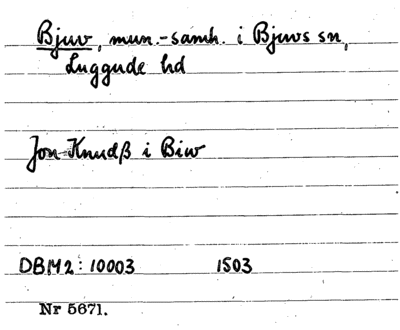 Bjuv, mun.-samh. i Bjuvs sn,
Luggude hd
Jon Knudß i Biw
DBM2: 10003 1503
Nr 5671.